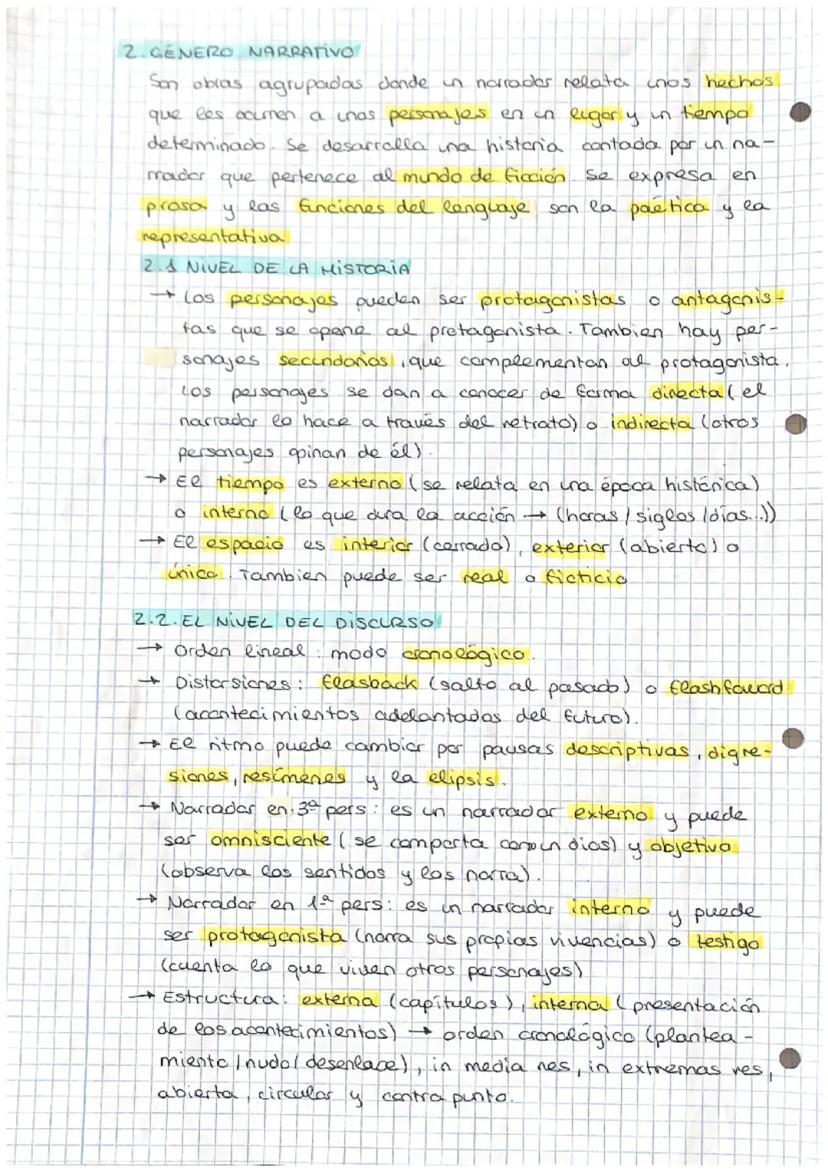 2. GÉNERO NARRATIVO
Son obras agrupadas donde un narrador relata unos hechos
que les ocurren a unos personajes en un lugar y un tiempo
determinado. Se desarrolla una historia contada por un na-
rrador que pertenece al mundo de ficción. Se expresa en
prosa y las funciones del lenguaje son la poética y la
representativa
2.1 NIVEL DE LA HISTORIA
→ Los personajes pueden ser protagonistas o antagonis-
tas que se opone al protagonista. Tambien hay per-
sonajes secundarios, que complementan al protagonista.
Los personajes se dan a conocer de forma directa (el
narrador lo hace a través del retrato) o indirecta (otros
personajes opinan de él).
→ El tiempo es externo (se relata en una época histórica)
o interno (lo que dura la acción → (horas / siglos /días...))
→ El espacio es interior (cerrado), exterior (abierto) o
único. Tambien puede ser real o ficticio
2.2. EL NIVEL DEL DISCURSO
→ Orden lineal: modo cronológico.
→ Distorsiones: flasback (salto al pasado) o flashfoward
(acontecimientos adelantados del futuro).
→ El ritmo puede cambiar por pausas descriptivas, digre-
siones, resúmenes y la elipsis.
→ Narrador en 3ª pers: es un narrador externo y puede
ser omnisciente (se comporta como un dios) y objetivo
(observa los sentidos y los narra).
→ Narrador en 1ª pers: es un narrador interno y puede
ser protagonista (narra sus propias vivencias) o testigo
(cuenta lo que viven otros personajes)
→ Estructura: externa (capítulos), interna (presentación
de los acontecimientos) → orden cronológico (plantea-
miento / nudo / desenlace), in media res, in extremas res,
abierta, circular y contra punto.